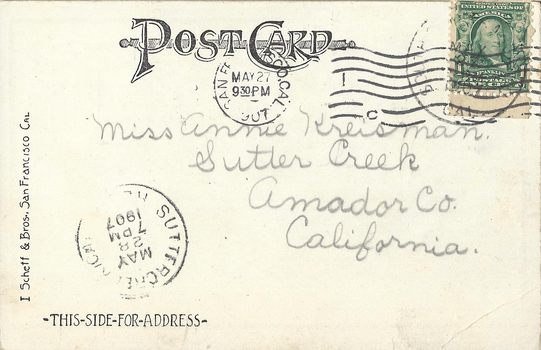 POST CARD
UNITED STATES OF
AMERICA
FRANKLIN
POSTAGE
SAN FRANCISCO, CAL.
MAY 27
9 30 PM
1907
C
CAL.
Miss Annie Kreisman.
Sutter Creek
Amador Co.
California.
SUTTER CREEK
MAY
28
7 PM
1907
I Scheff & Bros. San Francisco Cal
-THIS-SIDE-FOR-ADDRESS-